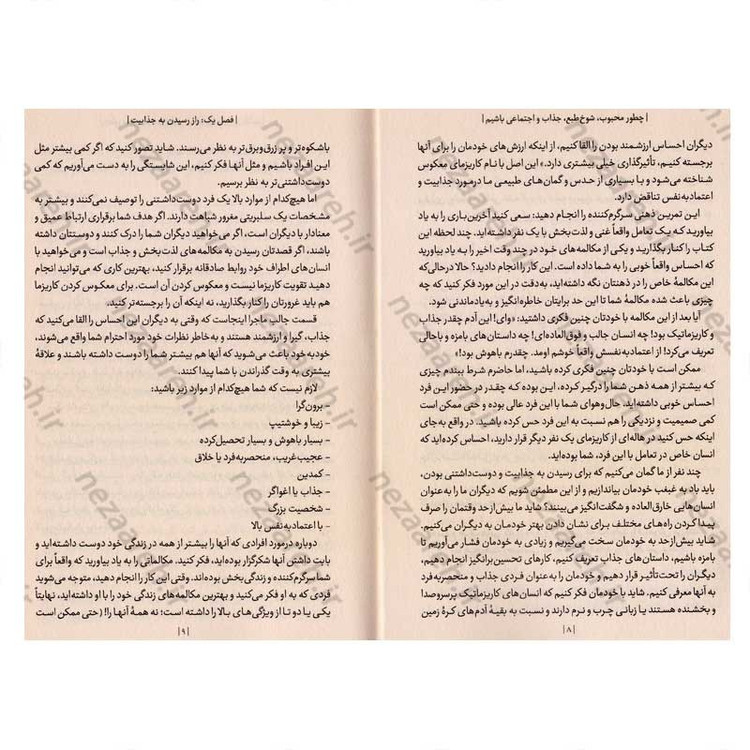 | چطور محبوب، شوخ‌طبع، جذاب و اجتماعی باشیم |
دیگران احساس ارزشمند بودن را القا کنیم، از اینکه ارزش‌های خودمان را برای آنها
برجسته کنیم، تأثیرگذاری خیلی بیشتری دارد.» این اصل با نام کاریزمای معکوس
شناخته می‌شود و با بسیاری از حدس و گمان‌های طبیعی ما درمورد جذابیت و
اعتمادبه‌نفس تناقض دارد.
این تمرین ذهنی سرگرم‌کننده را انجام دهید: سعی کنید آخرین‌باری را به یاد
بیاورید که یک تعامل واقعاً غنی و لذت‌بخش با یک نفر داشته‌اید. چند لحظه این
کتاب را کنار بگذارید و یکی از مکالمه‌های خود در چند وقت اخیر را به یاد بیاورید
که احساس واقعاً خوبی را به شما داده است. این کار را انجام دادید؟ حالا درحالی‌که
این مکالمهٔ خاص را در ذهنتان نگه داشته‌اید، به‌دقت در این مورد فکر کنید که چه
چیزی باعث شده مکالمهٔ شما تا این حد برایتان خاطره‌انگیز و به‌یادماندنی شود.
آیا بعد از این مکالمه با خودتان چنین فکری داشتید: «وای! این آدم چقدر جذاب
و کاریزماتیک بود! چه انسان جالب و فوق‌العاده‌ای! چه داستان‌های بامزه و باحالی
تعریف می‌کرد! از اعتمادبه‌نفسش واقعاً خوشم اومد. چقدرم باهوش بود!»
ممکن است با خودتان چنین فکری کرده باشید، اما حاضرم شرط ببندم چیزی
که بیشتر از همه ذهن شما را درگیر کرده، این بوده که چقدر در حضور این فرد
احساس خوبی داشته‌اید. حال‌وهوای شما با این فرد عالی بوده و حتی ممکن است
کمی صمیمیت و نزدیکی را هم نسبت به این فرد حس کرده باشید. در واقع به‌جای
اینکه حس کنید در هاله‌ای از کاریزمای یک نفر دیگر قرار دارید، احساس کرده‌اید که
انسان خاص در تعامل با این فرد، شما بوده‌اید.
چند نفر از ما گمان می‌کنیم که برای رسیدن به جذابیت و دوست‌داشتنی بودن،
باید باد به غبغب خودمان بیاندازیم و از این مطمئن شویم که دیگران ما را به‌عنوان
انسان‌هایی خارق‌العاده و شگفت‌انگیز می‌بینند؟ شاید ما بیش‌ازحد وقتمان را صرف
پیدا کردن راه‌های مختلف برای نشان دادن بهتر خودمان به دیگران می‌کنیم.
شاید بیش‌ازحد به خودمان سخت می‌گیریم و زیادی به خودمان فشار می‌آوریم تا
بامزه باشیم، داستان‌های جذاب تعریف کنیم، کارهای تحسین‌برانگیز انجام دهیم،
دیگران را تحت‌تأثیر قرار دهیم و خودمان را به عنوان فردی جذاب و منحصربه‌فرد
به آنها معرفی کنیم. شاید با خودمان فکر کنیم که انسان‌های کاریزماتیک پرسروصدا
و بخشنده هستند یا زبانی چرب و نرم دارند و نسبت به بقیهٔ آدم‌های کرهٔ زمین
| ۸ |
| فصل یک: راز رسیدن به جذابیت |
باشکوه‌تر و پر زرق‌وبرق‌تر به نظر می‌رسند. شاید تصور کنید که اگر کمی بیشتر مثل
این افراد باشیم و مثل آنها فکر کنیم، این شایستگی را به دست می‌آوریم که کمی
دوست‌داشتنی‌تر به نظر برسیم.
اما هیچ‌کدام از موارد بالا یک فرد دوست‌داشتنی را توصیف نمی‌کنند و بیشتر به
مشخصات یک سلبریتی مغرور شباهت دارند. اگر هدف شما برقراری ارتباط عمیق و
معنادار با دیگران است، اگر می‌خواهید دیگران شما را درک کنند و دوستتان داشته
باشند، اگر قصدتان رسیدن به مکالمه‌های لذت‌بخش و جذاب است و می‌خواهید با
انسان‌های اطراف خود روابط صادقانه برقرار کنید، بهترین کاری که می‌توانید انجام
دهید تقویت کاریزما نیست و معکوس کردن آن است. برای معکوس کردن کاریزما
هم باید غرورتان را کنار بگذارید، نه اینکه آن را برجسته‌تر کنید.
قسمت جالب ماجرا اینجاست که وقتی به دیگران این احساس را القا می‌کنید که
جذاب، گیرا و ارزشمند هستند و به خاطر نظرات خود مورد احترام شما واقع می‌شوند،
خودبه‌خود باعث می‌شوید که آنها هم بیشتر شما را دوست داشته باشند و علاقهٔ
بیشتری به وقت گذراندن با شما پیدا کنند.
لازم نیست که شما هیچ‌کدام از موارد زیر باشید:
- برون‌گرا
- زیبا و خوشتیپ
- بسیار باهوش و بسیار تحصیل‌کرده
- عجیب‌غریب، منحصربه‌فرد یا خلاق
- کمدین
- جذاب یا اغواگر
- شخصیت بزرگ
- با اعتمادبه‌نفس بالا
دوباره درمورد افرادی که آنها را بیشتر از همه در زندگی خود دوست داشته‌اید و
بابت داشتن آنها شکرگزار بوده‌اید، فکر کنید. مکالماتی را به یاد بیاورید که واقعاً برای
شما سرگرم‌کننده و زندگی‌بخش بوده‌اند. وقتی این کار را انجام دهید، متوجه می‌شوید
فردی که به او فکر می‌کنید و بهترین مکالمه‌های زندگی خود را با او داشته‌اید، نهایتاً
یکی یا دو تا از ویژگی‌های بالا را داشته است؛ نه همهٔ آنها را! (حتی ممکن است
| ۹ |
nezaareh.ir